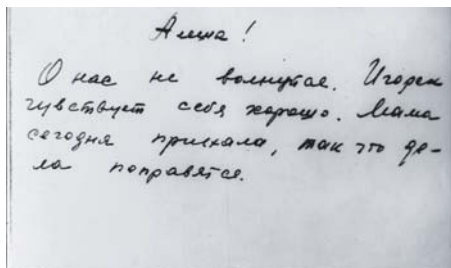 Алеша!
О нас не волнуйся. Игорек
чувствует себя хорошо. Мама
сегодня приехала, так что де-
ла поправятся.